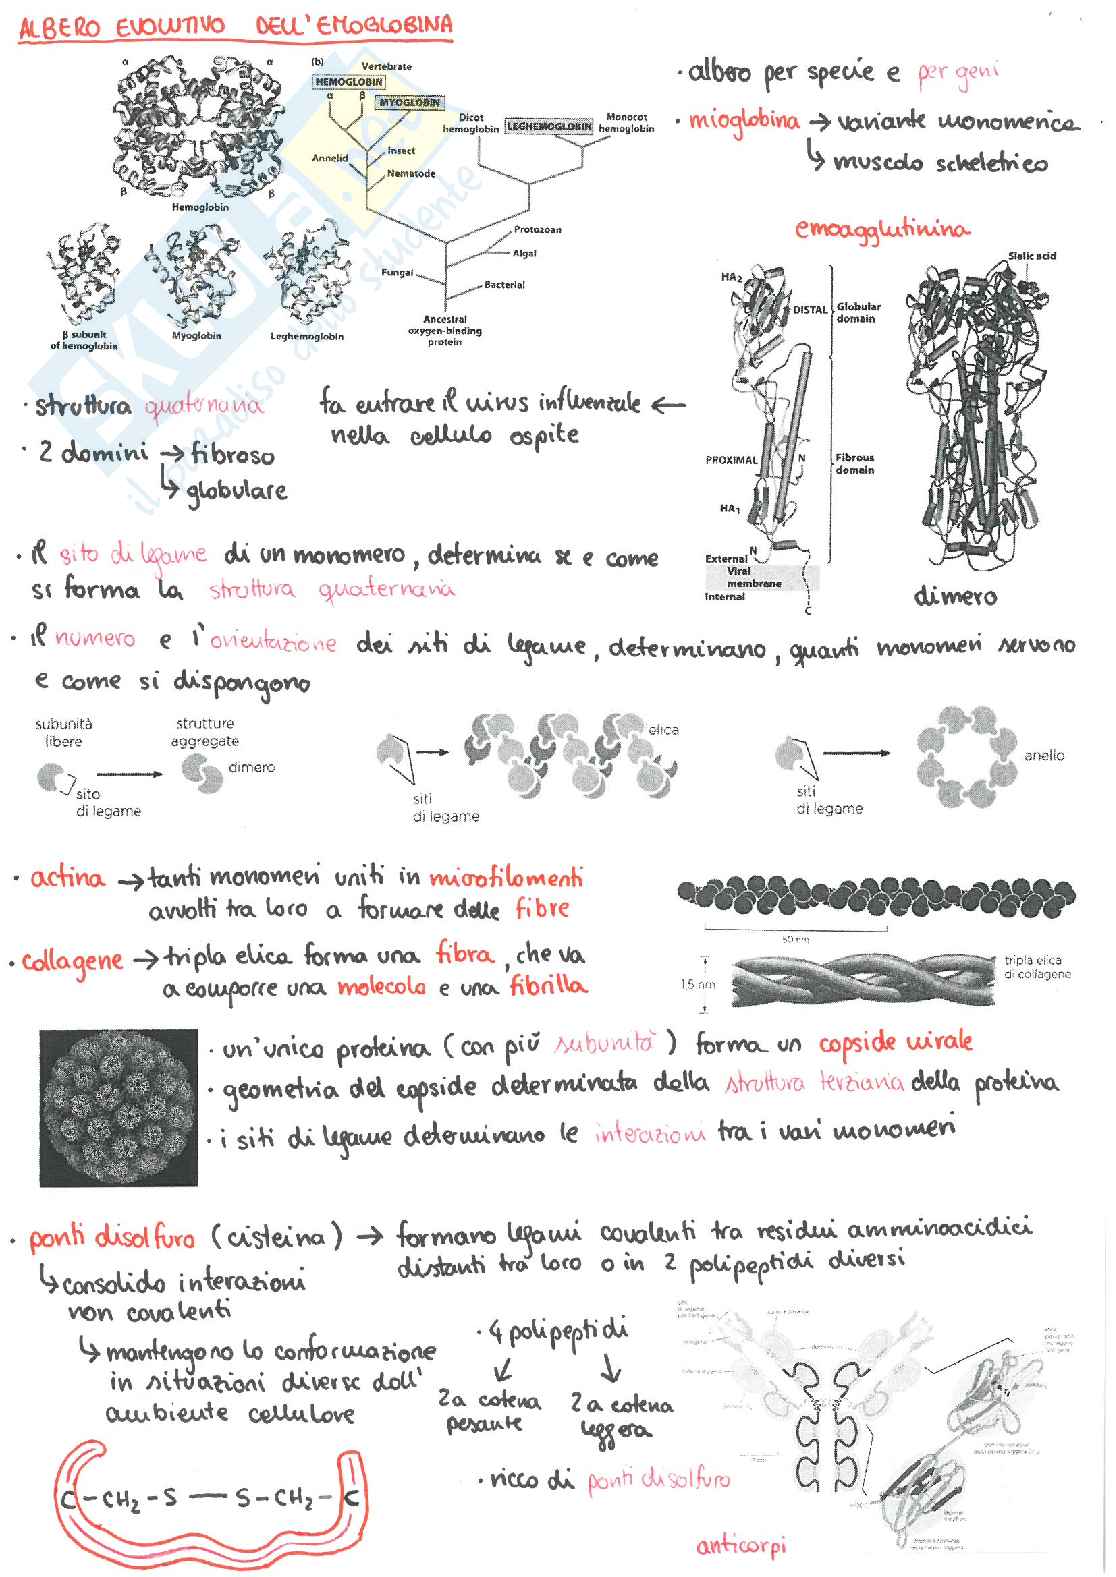 ALBERO EVOLUTIVO DELL'EMOGLOBINA
α
α
β
β
Hemoglobin
β subunit
of hemoglobin
Myoglobin
Leghemoglobin
(b)
Vertebrate
HEMOGLOBIN
α
β
MYOGLOBIN
Dicot
hemoglobin
LEGHEMOGLOBIN
Monocot
hemoglobin
Annelid
Insect
Nematode
Protozoan
Algal
Fungal
Bacterial
Ancestral
oxygen-binding
protein
· albero per specie e per geni
· mioglobina → variante monomerica
↳ muscolo scheletrico
emoagglutinina
HA2
DISTAL
Globular
domain
Sialic acid
PROXIMAL
N
Fibrous
domain
HA1
External
N
Viral
membrane
Internal
C
dimero
· struttura quaternaria
· 2 domini → fibroso
↳ globulare
fa entrare il virus influenzale ←
nella cellula ospite
· il sito di legame di un monomero, determina se e come
si forma la struttura quaternaria
· il numero e l'orientazione dei siti di legame, determinano, quanti monomeri servono
e come si dispongono
subunità
libere
sito
di legame
strutture
aggregate
dimero
siti
di legame
elica
siti
di legame
anello
· actina → tanti monomeri uniti in microfilamenti
avvolti tra loro a formare delle fibre
50 nm
· collagene → tripla elica forma una fibra, che va
a comporre una molecola e una fibrilla
1,5 nm
tripla elica
di collagene
· un'unica proteina (con più subunità) forma un capside virale
· geometria del capside determinata dalla struttura terziaria della proteina
· i siti di legame determinano le interazioni tra i vari monomeri
· ponti disolfuro (cisteina) → formano legami covalenti tra residui amminoacidici
distanti tra loro o in 2 polipeptidi diversi
↳ consolida interazioni
non covalenti
↳ mantengono la conformazione
in situazioni diverse dall'
ambiente cellulare
· 4 polipeptidi
2 a catena
pesante
2 a catena
leggera
· ricco di ponti disolfuro
C - CH2 - S — S - CH2 - C
anticorpi